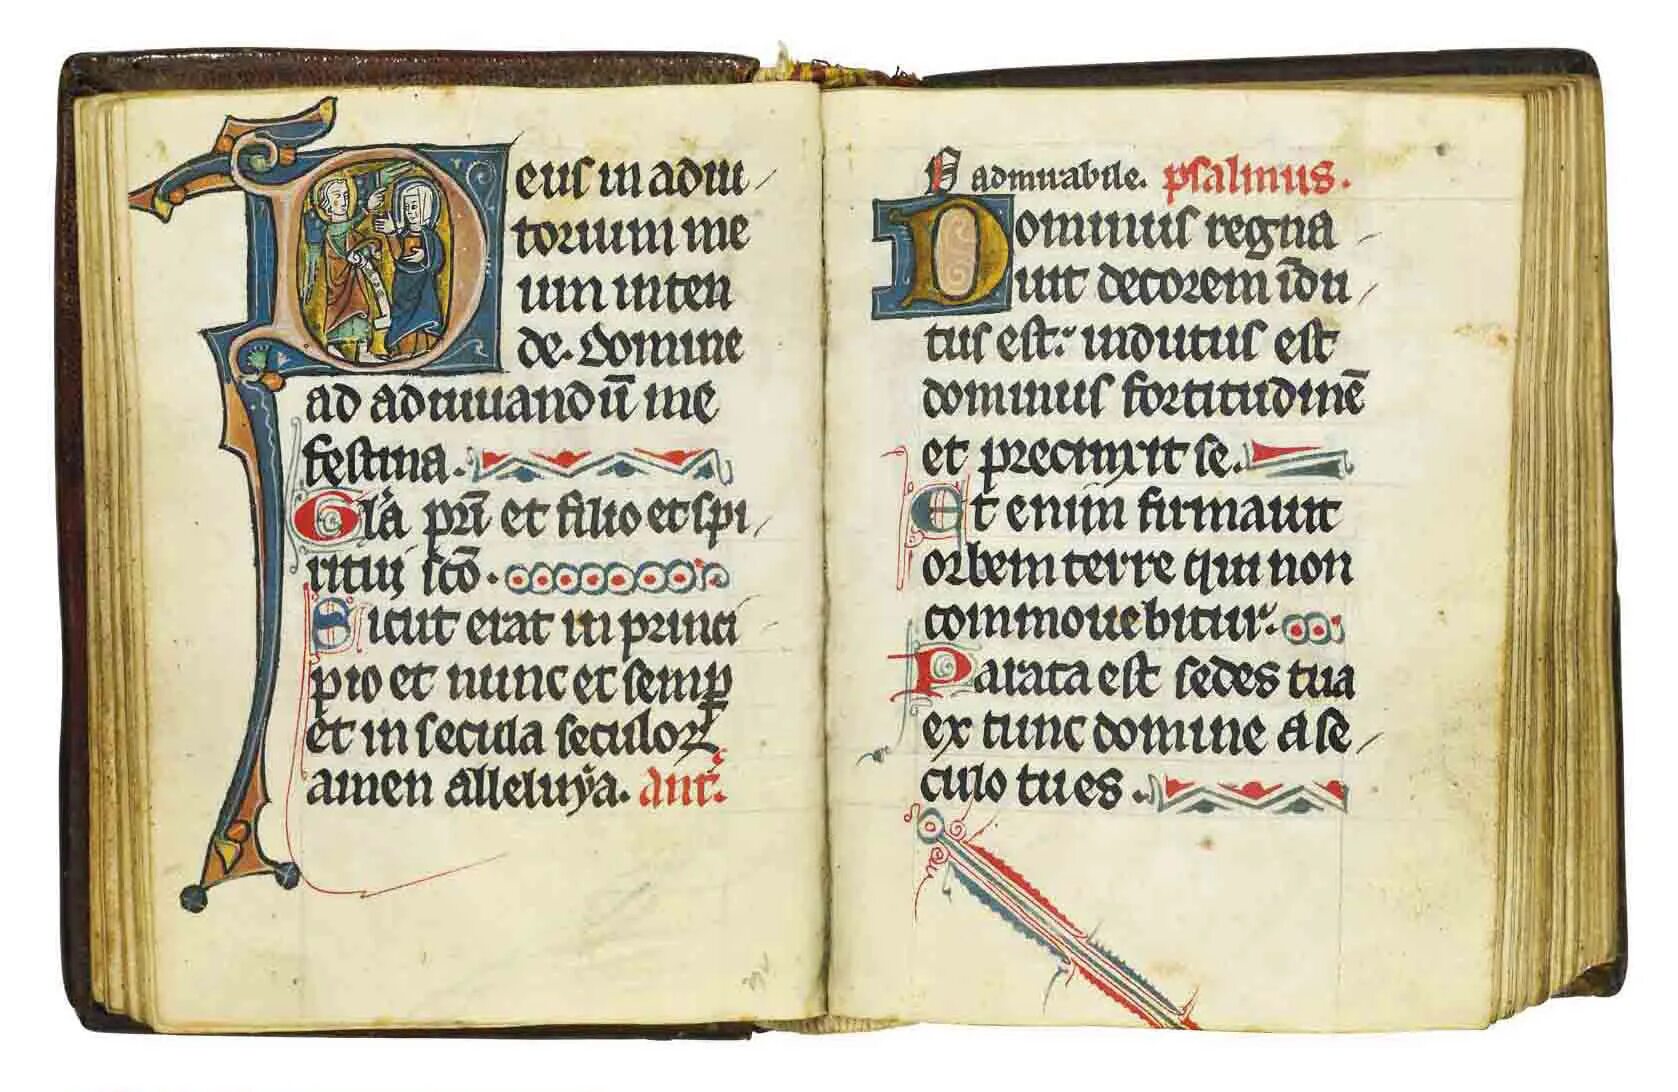 Deus in adiu
torium me
um inten
de. Domine
ad adiuuandū me
festina.
Gl'a pr̄i et filio et spi
ritui sc̄o.
Sicut erat in princi
pio et nunc et semꝑ
et in secula seculoꝝ
amen alleluya. ant'.
O admirabile. psalmus.
Dominus regna
uit decorem īdu
tus est: indutus est
dominus fortitudinē
et precinxit se.
Et enim firmauit
orbem terre qui non
commouebitur.
Parata est sedes tua
ex tunc domine a se
culo tu es.